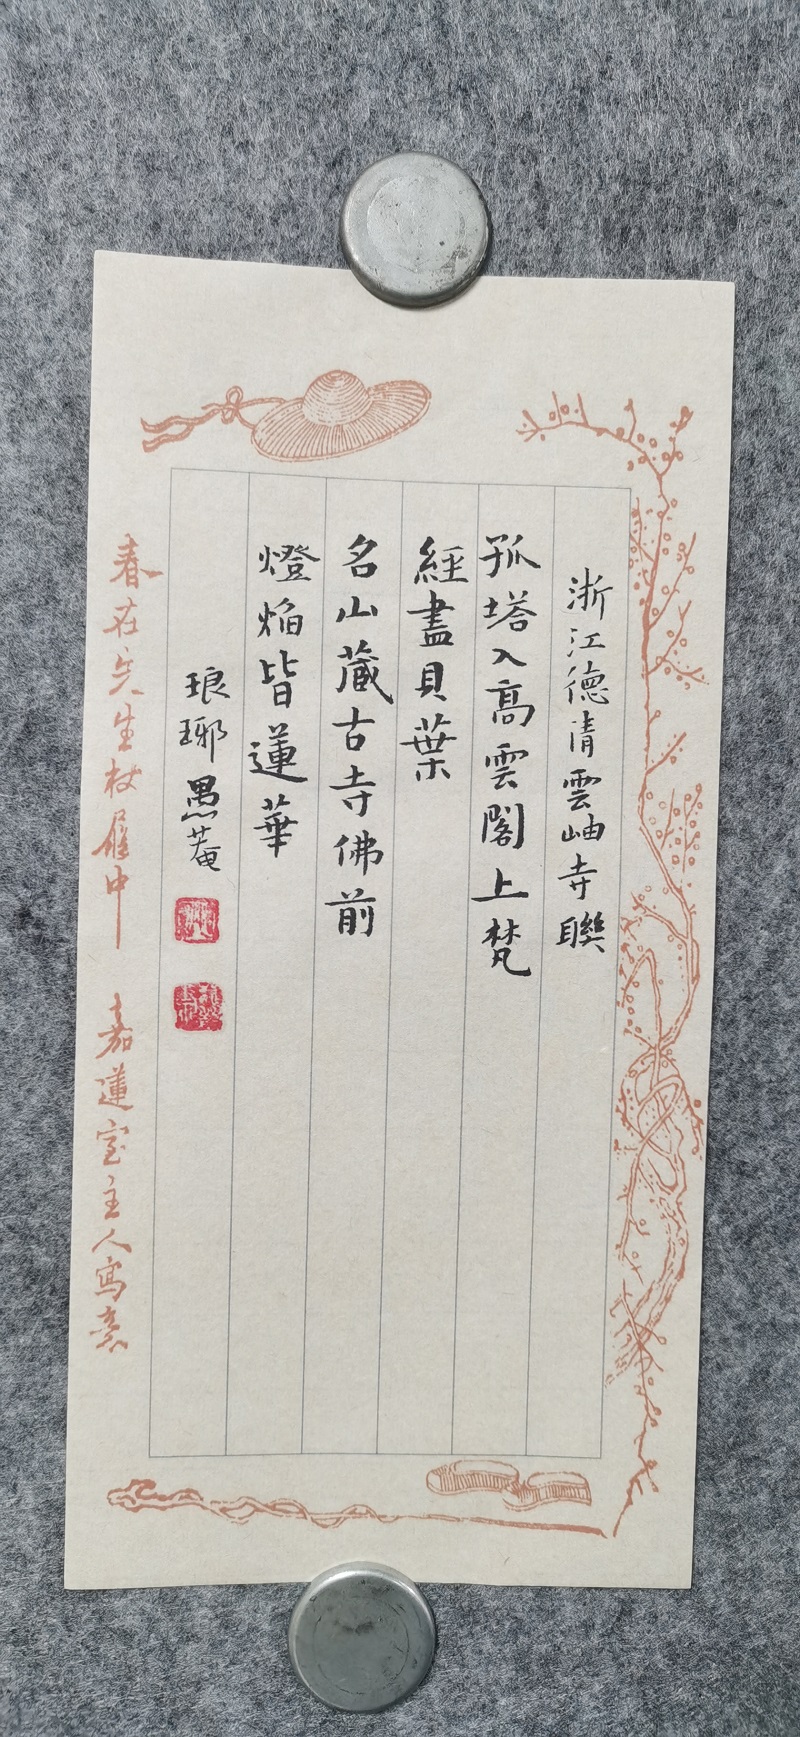 浙江德清雲岫寺聯
孤塔入高雲閣上梵
經盡貝葉
名山藏古寺佛前
燈焰皆蓮華
琅琊愚菴
春在先生杖履中
嘉蓮室主人寫意